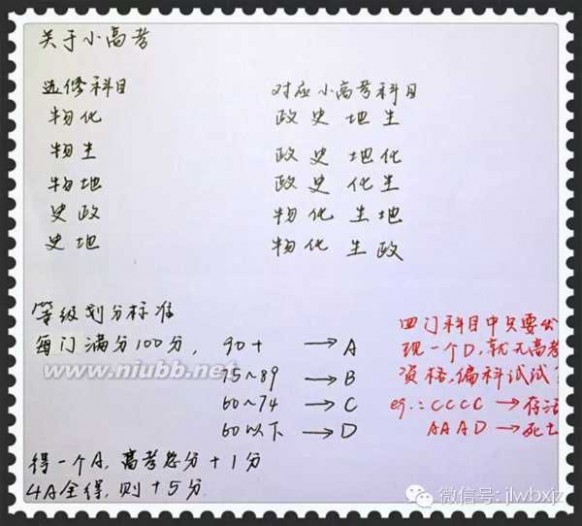 关于小高考
选修科目 对应小高考科目
物化 政史地生
物生 政史地化
物地 政史化生
史政 物化生地
史地 物化生政
等级划分标准
每门满分100分, 90+ → A
75~89 → B
60~74 → C
60以下 → D
得一个A, 高考总分+1分
4A全得, 则+5分
四门科目中只要出
现一个D, 就无高考
资格, 偏科试试
eg.: CCCC → 存活
AAAD → 死亡
www.niubb.net
微信号: jlwbxjz